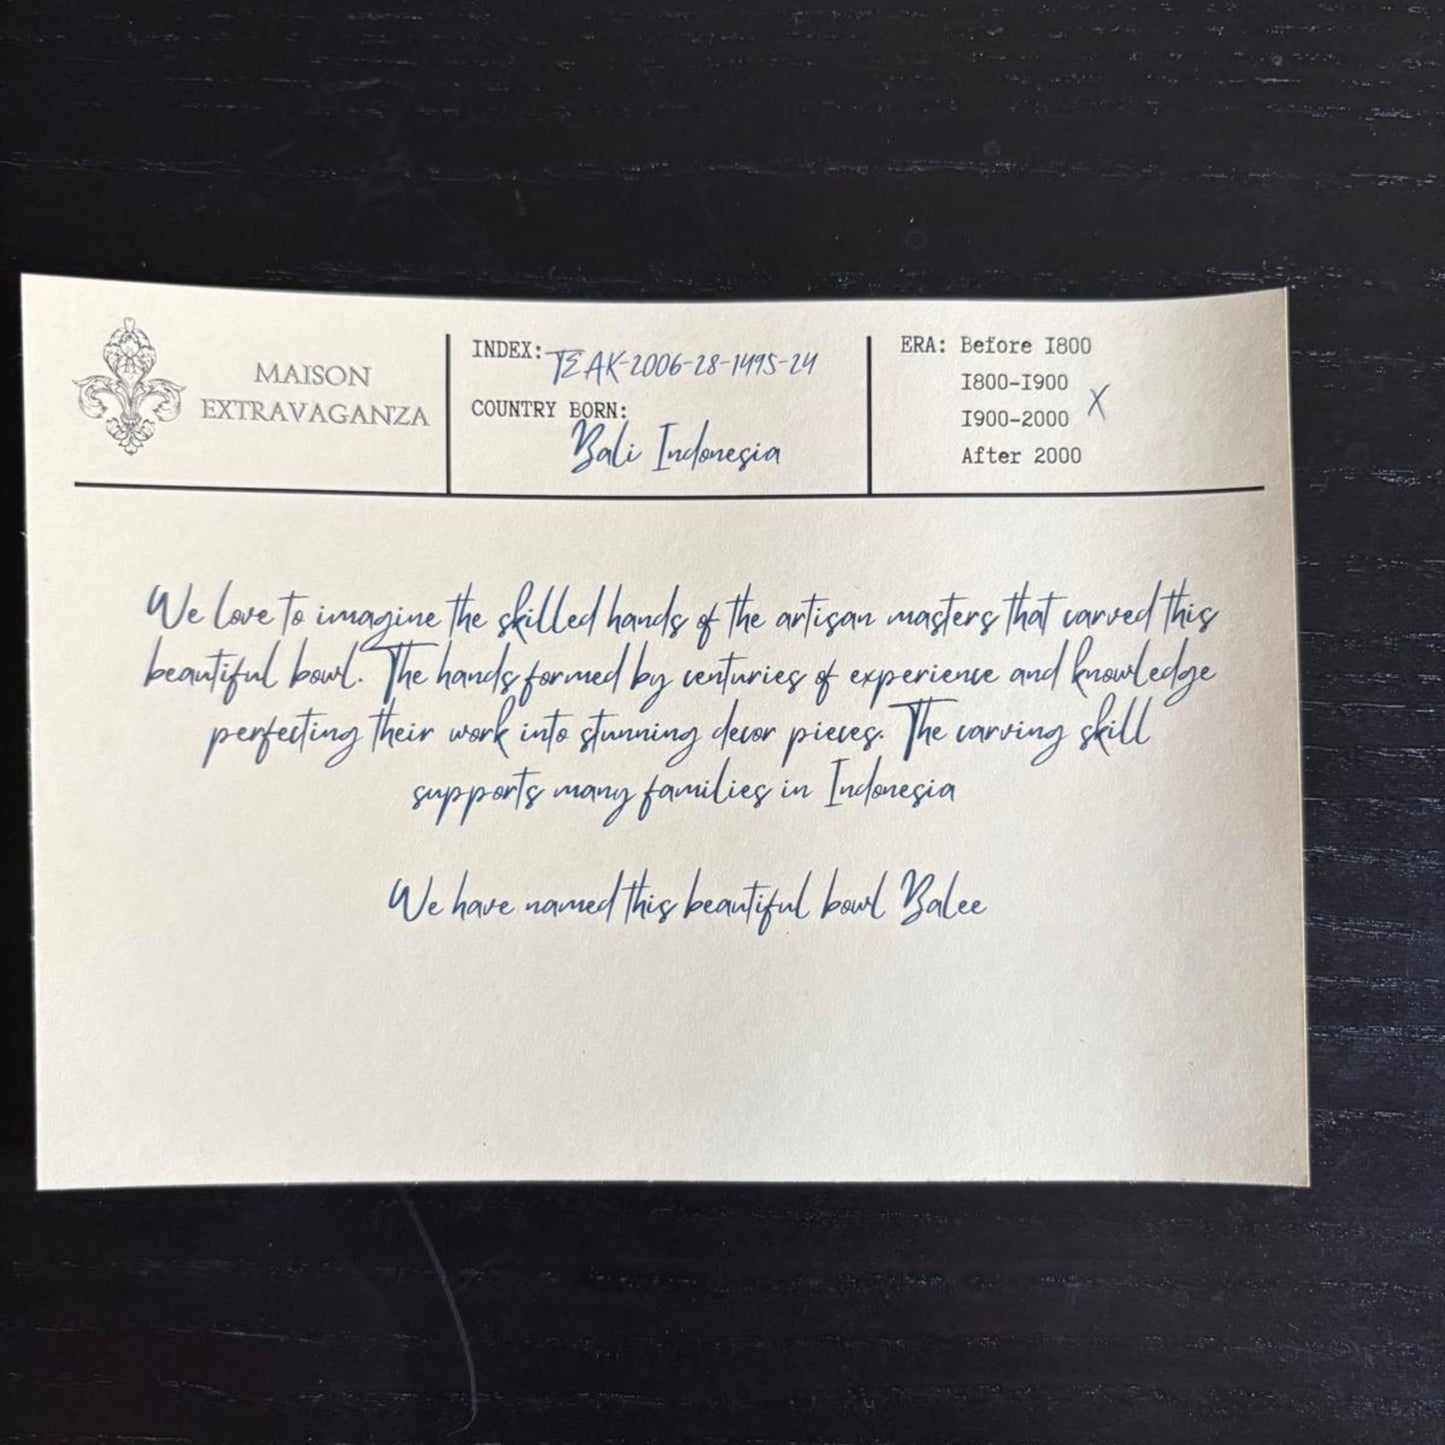 MAISON
EXTRAVAGANZA
INDEX: TEAK-2006-28-1495-24
COUNTRY BORN:
Bali Indonesia
ERA: Before 1800
1800-1900
1900-2000 X
After 2000
We love to imagine the skilled hands of the artisan masters that carved this
beautiful bowl. The hands formed by centuries of experience and knowledge
perfecting their work into stunning decor pieces. The carving skill
supports many families in Indonesia
We have named this beautiful bowl Balee